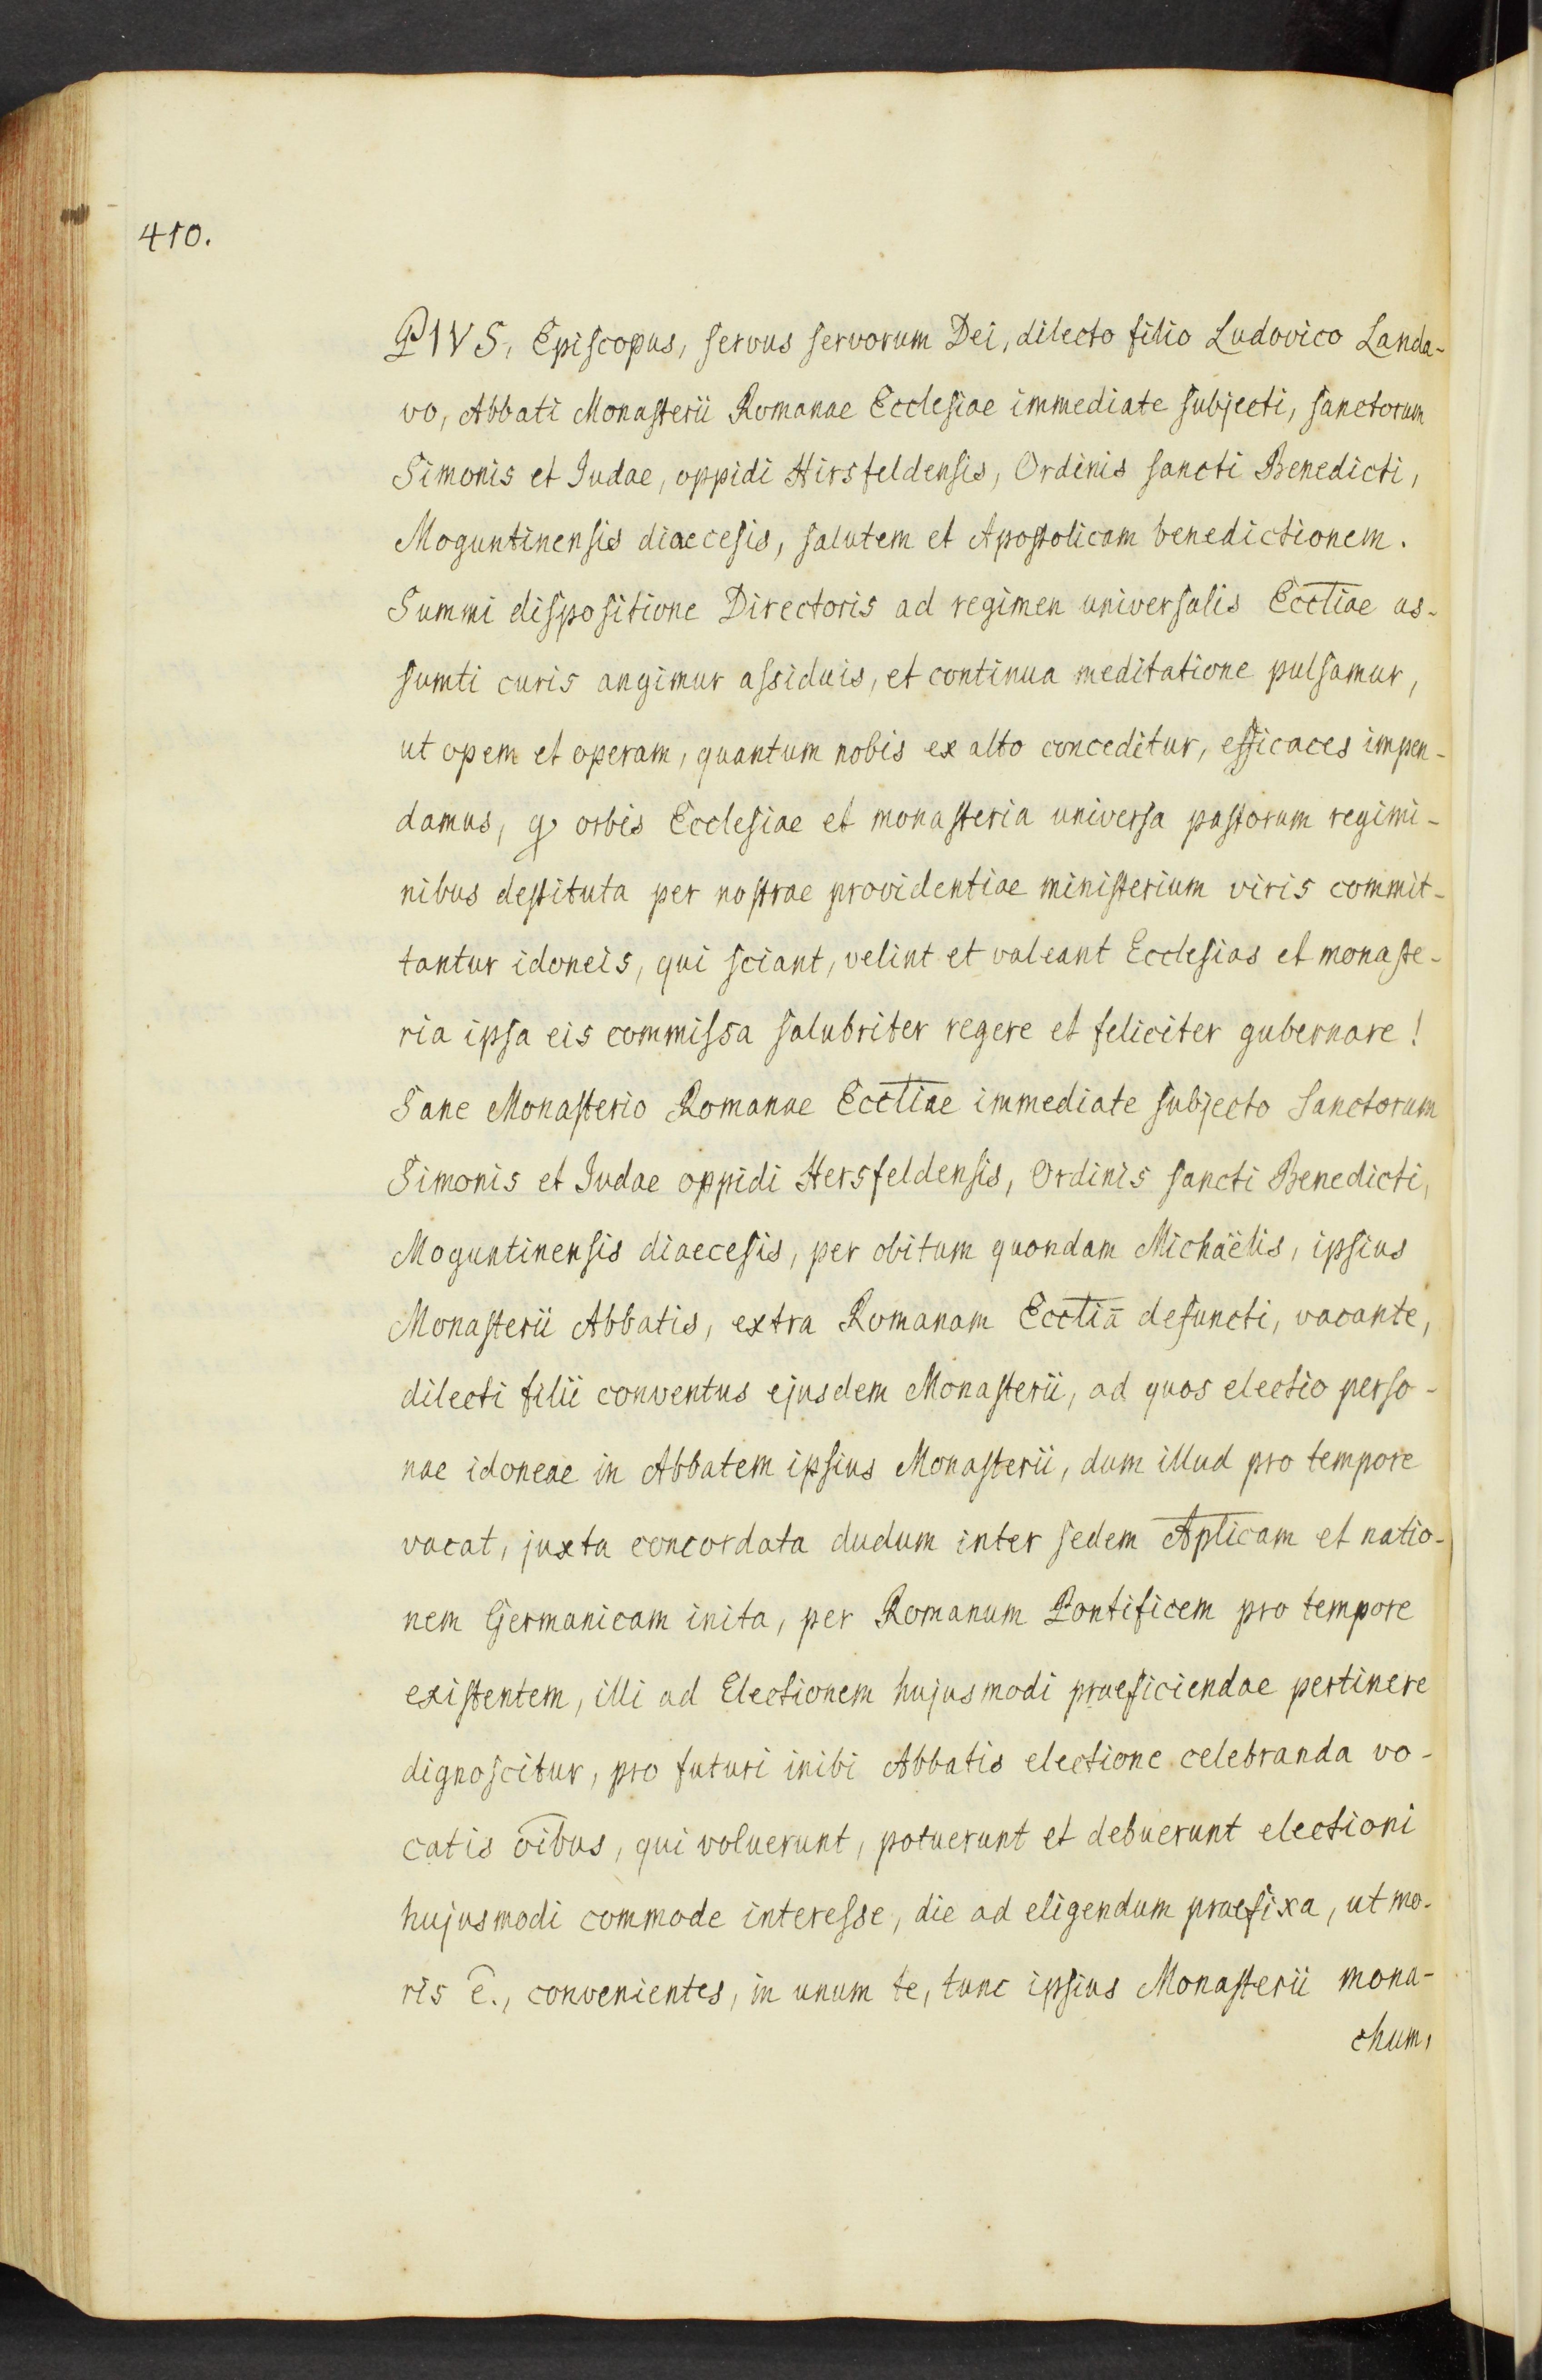 410.
PIVS, Episcopus, servus servorum Dei, dilecto filio Ludovico Landa-
vo, Abbati Monasterii Romanae Ecclesiae immediate subjecti, sanctorum
Simonis et Iudae, oppidi Hirsfeldensis, Ordinis sancti Benedicti,
Moguntinensis diaecesis, salutem et Apostolicam benedictionem.
Summi dispositione Directoris ad regimen universalis Eccliae as-
sumti curis angimur assiduis, et continua meditatione pulsamur,
ut opem et operam, quantum nobis ex alto conceditur, efficaces impen-
damus, orbis Ecclesiae et monasteria universa pastorum regimi-
nibus destituta per nostrae providentiae ministerium viris commit-
tantur idoneis, qui sciant, velint et valeant Ecclesias et monaste-
ria ipsa eis commissa salubriter regere et feliciter gubernare!
Sane Monasterio Romanae Eccliae immediate subjecto Sanctorum
Simonis et Iudae oppidi Hersfeldensis, Ordinis sancti Benedicti,
Moguntinensis diaecesis, per obitum quondam Michaëlis, ipsius
Monasterii Abbatis, extra Romanam Eccliā defuncti, vacante,
dilecti filii conventus ejusdem Monasterii, ad quos electio perso-
nae idoneae in Abbatem ipsius Monasterii, dum illud pro tempore
vacat, juxta concordata dudum inter sedem Aplicam et natio-
nem Germanicam inita, per Romanum Pontificem pro tempore
existentem, illi ad Electionem hujusmodi praeficiendae pertinere
dignoscitur, pro futuri inibi Abbatis electione celebranda vo-
catis o̅ibus, qui voluerunt, potuerunt et debuerunt electioni
hujusmodi commode interesse, die ad eligendum praefixa, ut mo-
ris ē., convenientes, in unum te, tunc ipsius Monasterii mona-
chum,